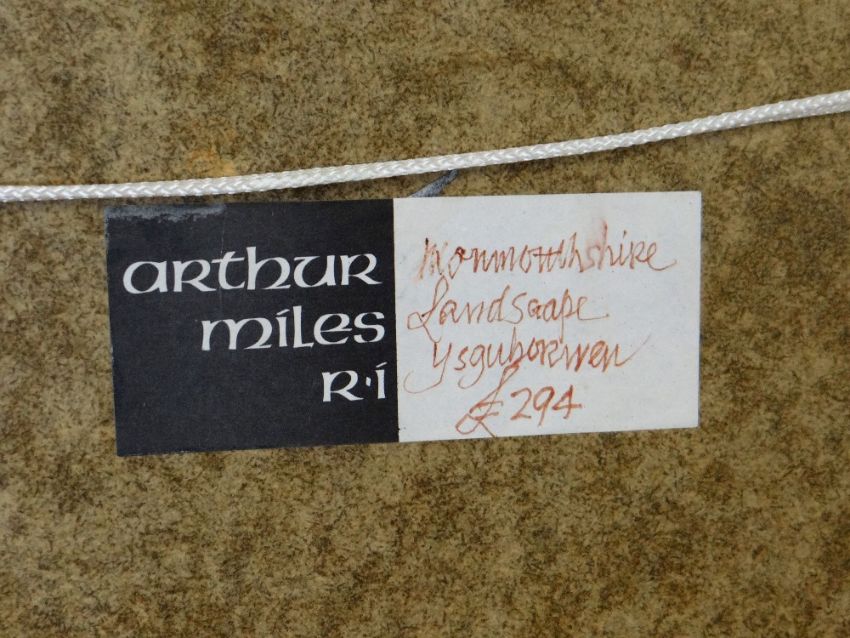 arthur
miles
R·i
Monmouthshire
Landscape
Ysguborwen
£294